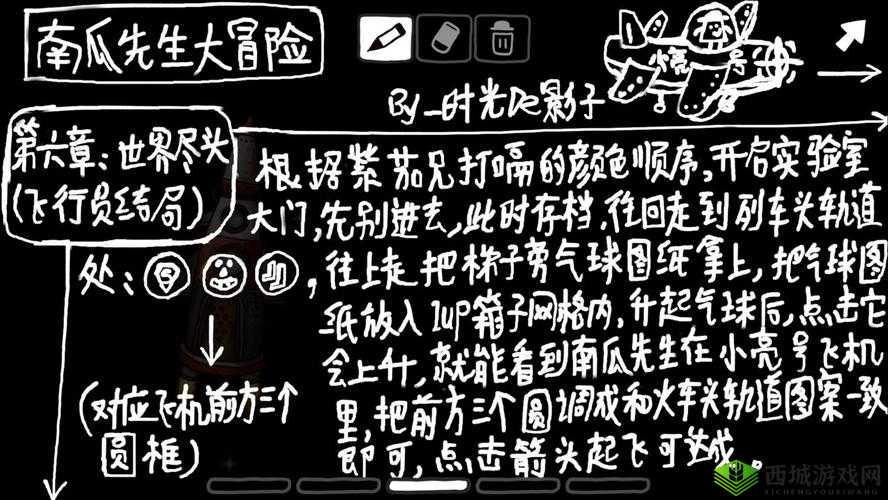 南瓜先生大冒险
小亮号
By_时光De影子
第六章：世界尽头
(飞行员结局)
根据紫茄兄打嗝的颜色顺序,开启实验室
大门,先别进去,此时存档,往回走到列车头轨道
处：
,往上走把梯子旁气球图纸拿上,把气球图
纸放入1UP箱子网格内,升起气球后,点击它
会上升,就能看到南瓜先生在小亮号飞机
里,把前方三个圆调成和火车头轨道图案一致
即可,点击箭头起飞可达成。
(对应飞机前方三个
圆框)
西城游戏网
XICHENGYOUXIWANG